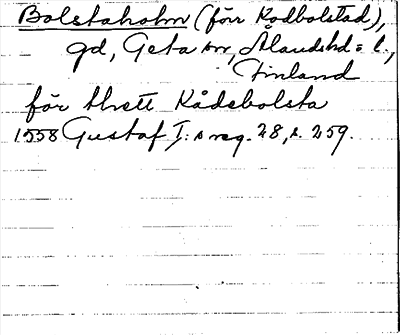 Bolstaholm (förr Kodbolstad),
gd, Geta sn, Ålands hd o l.,
Finland
för thett Kådebolsta
1558 Gustaf I:s reg. 28, s. 259.